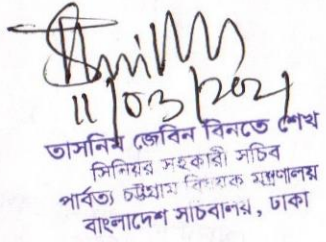 11/03/2021
তাসনিম জেবিন বিনতে শেখ
সিনিয়র সহকারী সচিব
পার্বত্য চট্টগ্রাম বিষয়ক মন্ত্রণালয়
বাংলাদেশ সচিবালয়, ঢাকা